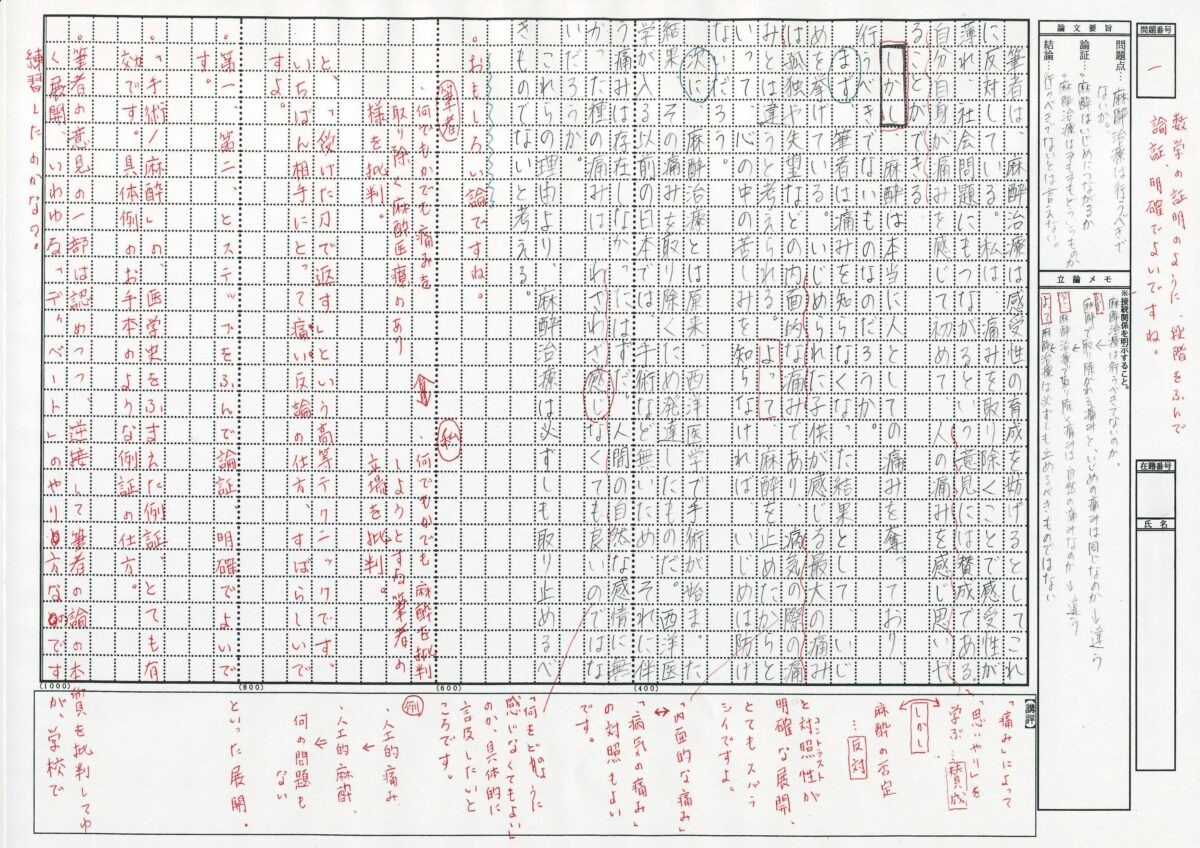 問題番号
一
数学の証明のように、段階をふんで
論証。明確でよいですね。
在籍番号
氏名
論文要旨
問題点:麻酔治療は行うべきで
ないか。
論証:・麻酔はいじめにつながるか
結論:行うべきでないとは言えない。
立論メモ
※接続関係を明示すること。
麻酔治療は行うべきでないのか。
麻酔で取り除かれる痛みと、いじめの痛みは同じなのか→違う
麻酔治療で取り除く痛みは自然の痛みなのか→違う
よって麻酔治療は必ずしも止めるべきものではない
筆者は、麻酔治療は感受性の育成を妨げるとしてこれ
に反対している。私は、痛みを取り除くことで感受性が
薄れ、社会問題にもつながるという意見には賛成である。
自分自身が痛みを感じて初めて、人の痛みを感じ思いや
ることができる。
しかし、麻酔は本当に人としての痛みを奪っており、
行うべきでないものなのだろうか。
まず、筆者は痛みを知らなくなった結果として、いじ
めを挙げている。いじめられた子供が感じる最大の痛み
は孤独や失望などの内面的な痛みであり、病気の際の痛
みとは違うと考えられる。よって、麻酔を止めたからと
いって、心の中の苦しみを知らなければ、いじめは防げ
ないだろう。
次に、麻酔治療とは原来、西洋医学で手術が始まった
結果、その痛みを取り除くため発達したものだ。西洋医
学が入る以前の日本では、手術など無いため、それに伴
う痛みは存在しなかったはずだ。人間の自然な感情に無
かった種の痛みは、わざわざ感じなくても良いのではな
いだろうか。
これらの理由より、麻酔治療は必ずしも取り止めるべ
きものでないと考える。
・おもしろい論ですね。
筆者
・何でもかでも痛みを
取り除く麻酔医療のあり
様を批判。
私
・何でもかでも麻酔を批判
しようとする筆者の
立場を批判。
と、「受けた刀で返す」という高等テクニックです。
いちばん相手にとって痛い反論の仕方。すばらしいで
すよ。
・第一、第二、とステップをふんで論証。明確でよいで
す。
・「手術/麻酔」の医学史をふまえた例証。とても有
効です。具体例のお手本のような例証の仕方。
・筆者の意見の一部は認めつつ、逆接して筆者の論の本質を批判してゆ
く展開。いわゆる「ディベート」のやり方なのですが、学校で
練習したのかな?。
(400)
(600)
(800)
(1000)
【講評】
「痛み」によって
「思いやり」を
学ぶ…賛成
しかし
麻酔の否定
…反対
と対照性が
コントラスト
明確な展開、
とてもスバラ
シイですよ。
「内面的な痛み」
↔
「病気の痛み」
の対照もよい
です。
「何をどのように
感じなくてもよい」
のか、具体的に
言及したいと
ころです。
例
・人工的痛み
←
・人工的麻酔
←
何の問題も
ない
といった展開。